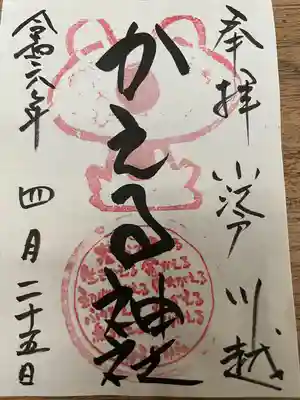 奉拝 小江戸川越
かえる神社
令和六年 四月二十五日